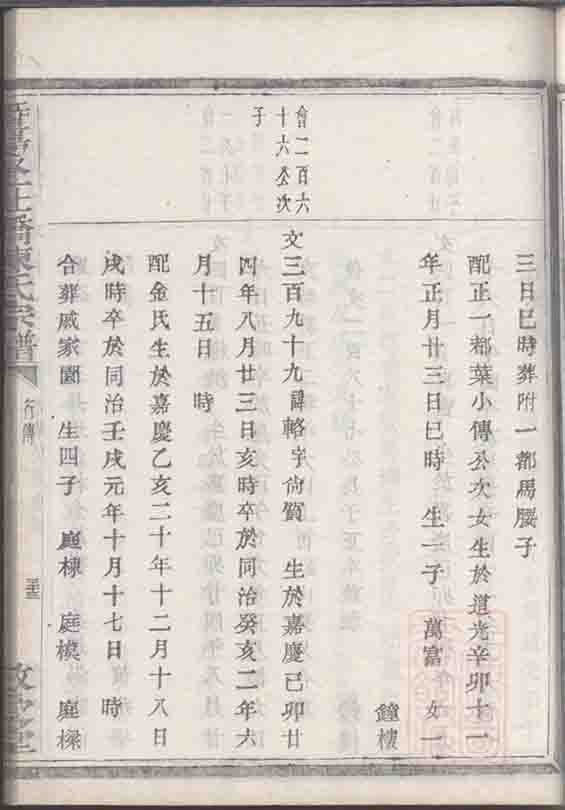 三日巳時葬附一都馬腰子
配正一都葉小傳公次女生於道光辛卯十一
年正月廿三日巳時　生一子　萬富　女一
鐘樓
會二百六
十六公次
子
文三百九十九諱輅字尚質　生於嘉慶己卯廿
四年八月廿三日亥時卒於同治癸亥二年六
月十五日　時
配金氏生於嘉慶乙亥二十年十二月十八日
戌時卒於同治壬戌元年十月十七日　時
合葬戚家園　生四子　庭棟　庭模　庭樑
橋陳氏宗譜
行傳